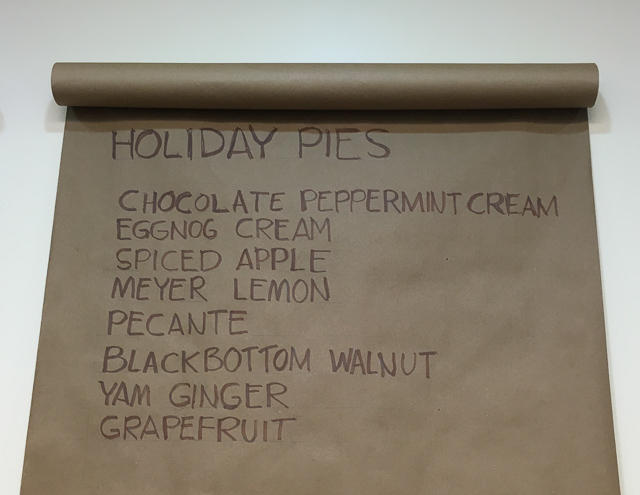 HOLIDAY PIES
CHOCOLATE PEPPERMINT CREAM
EGGNOG CREAM
SPICED APPLE
MEYER LEMON
PECANTE
BLACKBOTTOM WALNUT
YAM GINGER
GRAPEFRUIT